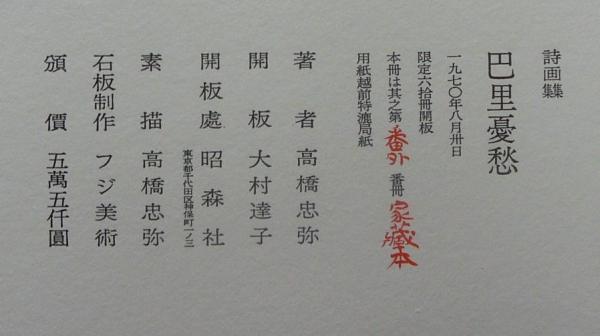 詩画集
巴里憂愁
一九七〇年八月卅日
限定六拾冊開板
本冊は其之第番外番冊家蔵本
用紙越前特漉局紙
著者高橋忠弥
開板大村達子
開板處昭森社
東京都千代田区神保町一ノ三
素描高橋忠弥
石板制作フジ美術
頒價五萬五仟圓